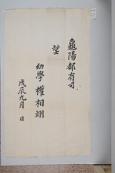 龜陽都有司
望
幼學 權相翊
戊辰九月 日